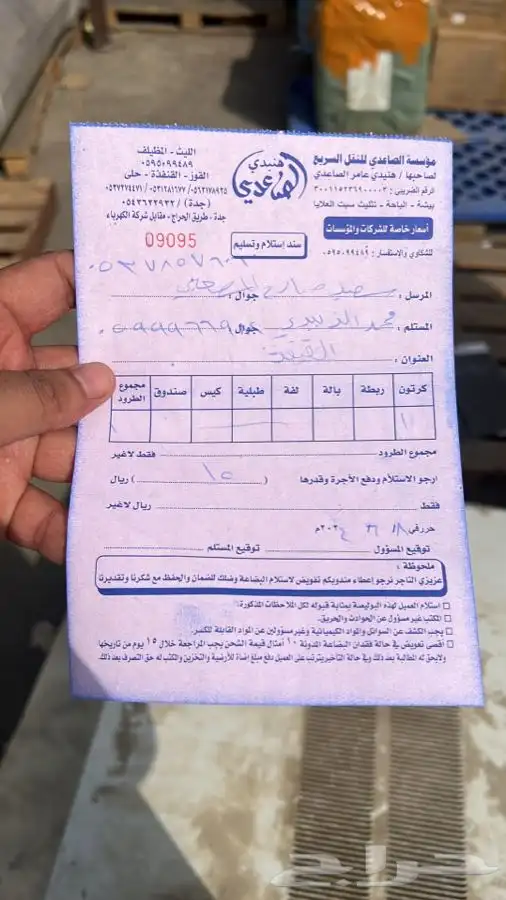 مؤسسة الصاعدي للنقل السريع
لصاحبها / هنيدي عامر الصاعدي
الرقم الضريبي : ٣٠٠١١٥٢٣٦٩٠٠٠٠٣
بيشة - الباحة - تثليث سبت العلايا
أسعار خاصة للشركات والمؤسسات
للشكاوي والاستفسار : ٠٥٩٥٠٩٩٤٨٩
هنيدي
الصاعدي
سند إستلام وتسليم
الليث - المظيلف
٠٥٩٥٠٩٩٤٨٩
القوز - القنفذة - حلى
٠٥٦٢١٧٨٩٢٥ / ٠٥٣١٢٨١٦٧٧ / ٠٥٣٧٢٧٤٤٧١
(جدة) / ٠٥٤٣٦٢٢٩٣٢
جدة - طريق الحراج - مقابل شركة الكهرباء
09095
المرسل : سعيد جوال :
المستلم : محمد الزبيدي جوال
العنوان :
كرتون ربطة بالة لفة طبلية كيس صندوق مجموع الطرود
مجموع الطرود فقط لاغير
ارجو الاستلام ودفع الأجرة وقدرها ( ١٥ ) ريال
فقط ريال لاغير
حرر في ٢٠٢٤م
توقيع المسؤول توقيع المستلم
ملحوظة :
عزيزي التاجر نرجو إعطاء مندوبكم تفويض لاستلام البضاعة وضلك للضمان والحفظ مع شكرنا وتقديرنا
استلام العميل لهذه البوليصة بمثابة قبوله لكل الملاحظات المذكورة.
المكتب غير مسؤول عن الحوادث والحريق.
يجب الكشف عن السوائل والمواد الكيميائية وغير مسؤولين عن المواد القابلة للكسر.
أقصى تعويض في حالة فقدان البضاعة المدونة ١٠ أمثال قيمة الشحن يجب المراجعة خلال ١٥ يوم من تاريخها
ولايحق له المطالبة بعد ذلك وفي حالة التأخير يترتب على العميل دفع مبلغ إضافة للأرضية والتخزين والكتب له حق التصرف بعد ذلك.
حراج